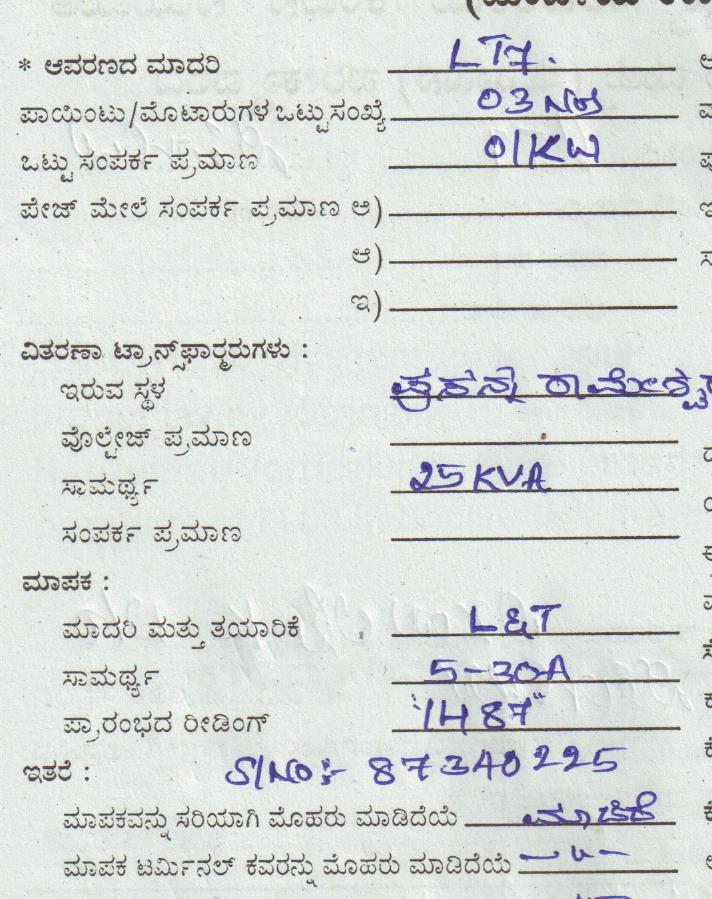 * ಆವರಣದ ಮಾದರಿ LT7.
ಪಾಯಿಂಟು/ಮೊಟಾರುಗಳ ಒಟ್ಟುಸಂಖ್ಯೆ 03 Nos
ಒಟ್ಟು ಸಂಪರ್ಕ ಪ್ರಮಾಣ 01KW
ಪೇಜ್ ಮೇಲೆ ಸಂಪರ್ಕ ಪ್ರಮಾಣ ಅ)
ಆ)
ಇ)
ವಿತರಣಾ ಟ್ರಾನ್ಸ್‌ಫಾರ್ಮರುಗಳು :
ಇರುವ ಸ್ಥಳ ಪ್ರಸನ್ನ
ವೊಲ್ಟೇಜ್ ಪ್ರಮಾಣ
ಸಾಮರ್ಥ್ಯ 25 KVA
ಸಂಪರ್ಕ ಪ್ರಮಾಣ
ಮಾಪಕ :
ಮಾದರಿ ಮತ್ತು ತಯಾರಿಕೆ L&T
ಸಾಮರ್ಥ್ಯ 5-30A
ಪ್ರಾರಂಭದ ರೀಡಿಂಗ್ "1487"
ಇತರೆ : S/NO:- 87340225
ಮಾಪಕವನ್ನು ಸರಿಯಾಗಿ ಮೊಹರು ಮಾಡಿದೆಯೆ
ಮಾಪಕ ಟರ್ಮಿನಲ್ ಕವರನ್ನು ಮೊಹರು ಮಾಡಿದೆಯೆ —"—